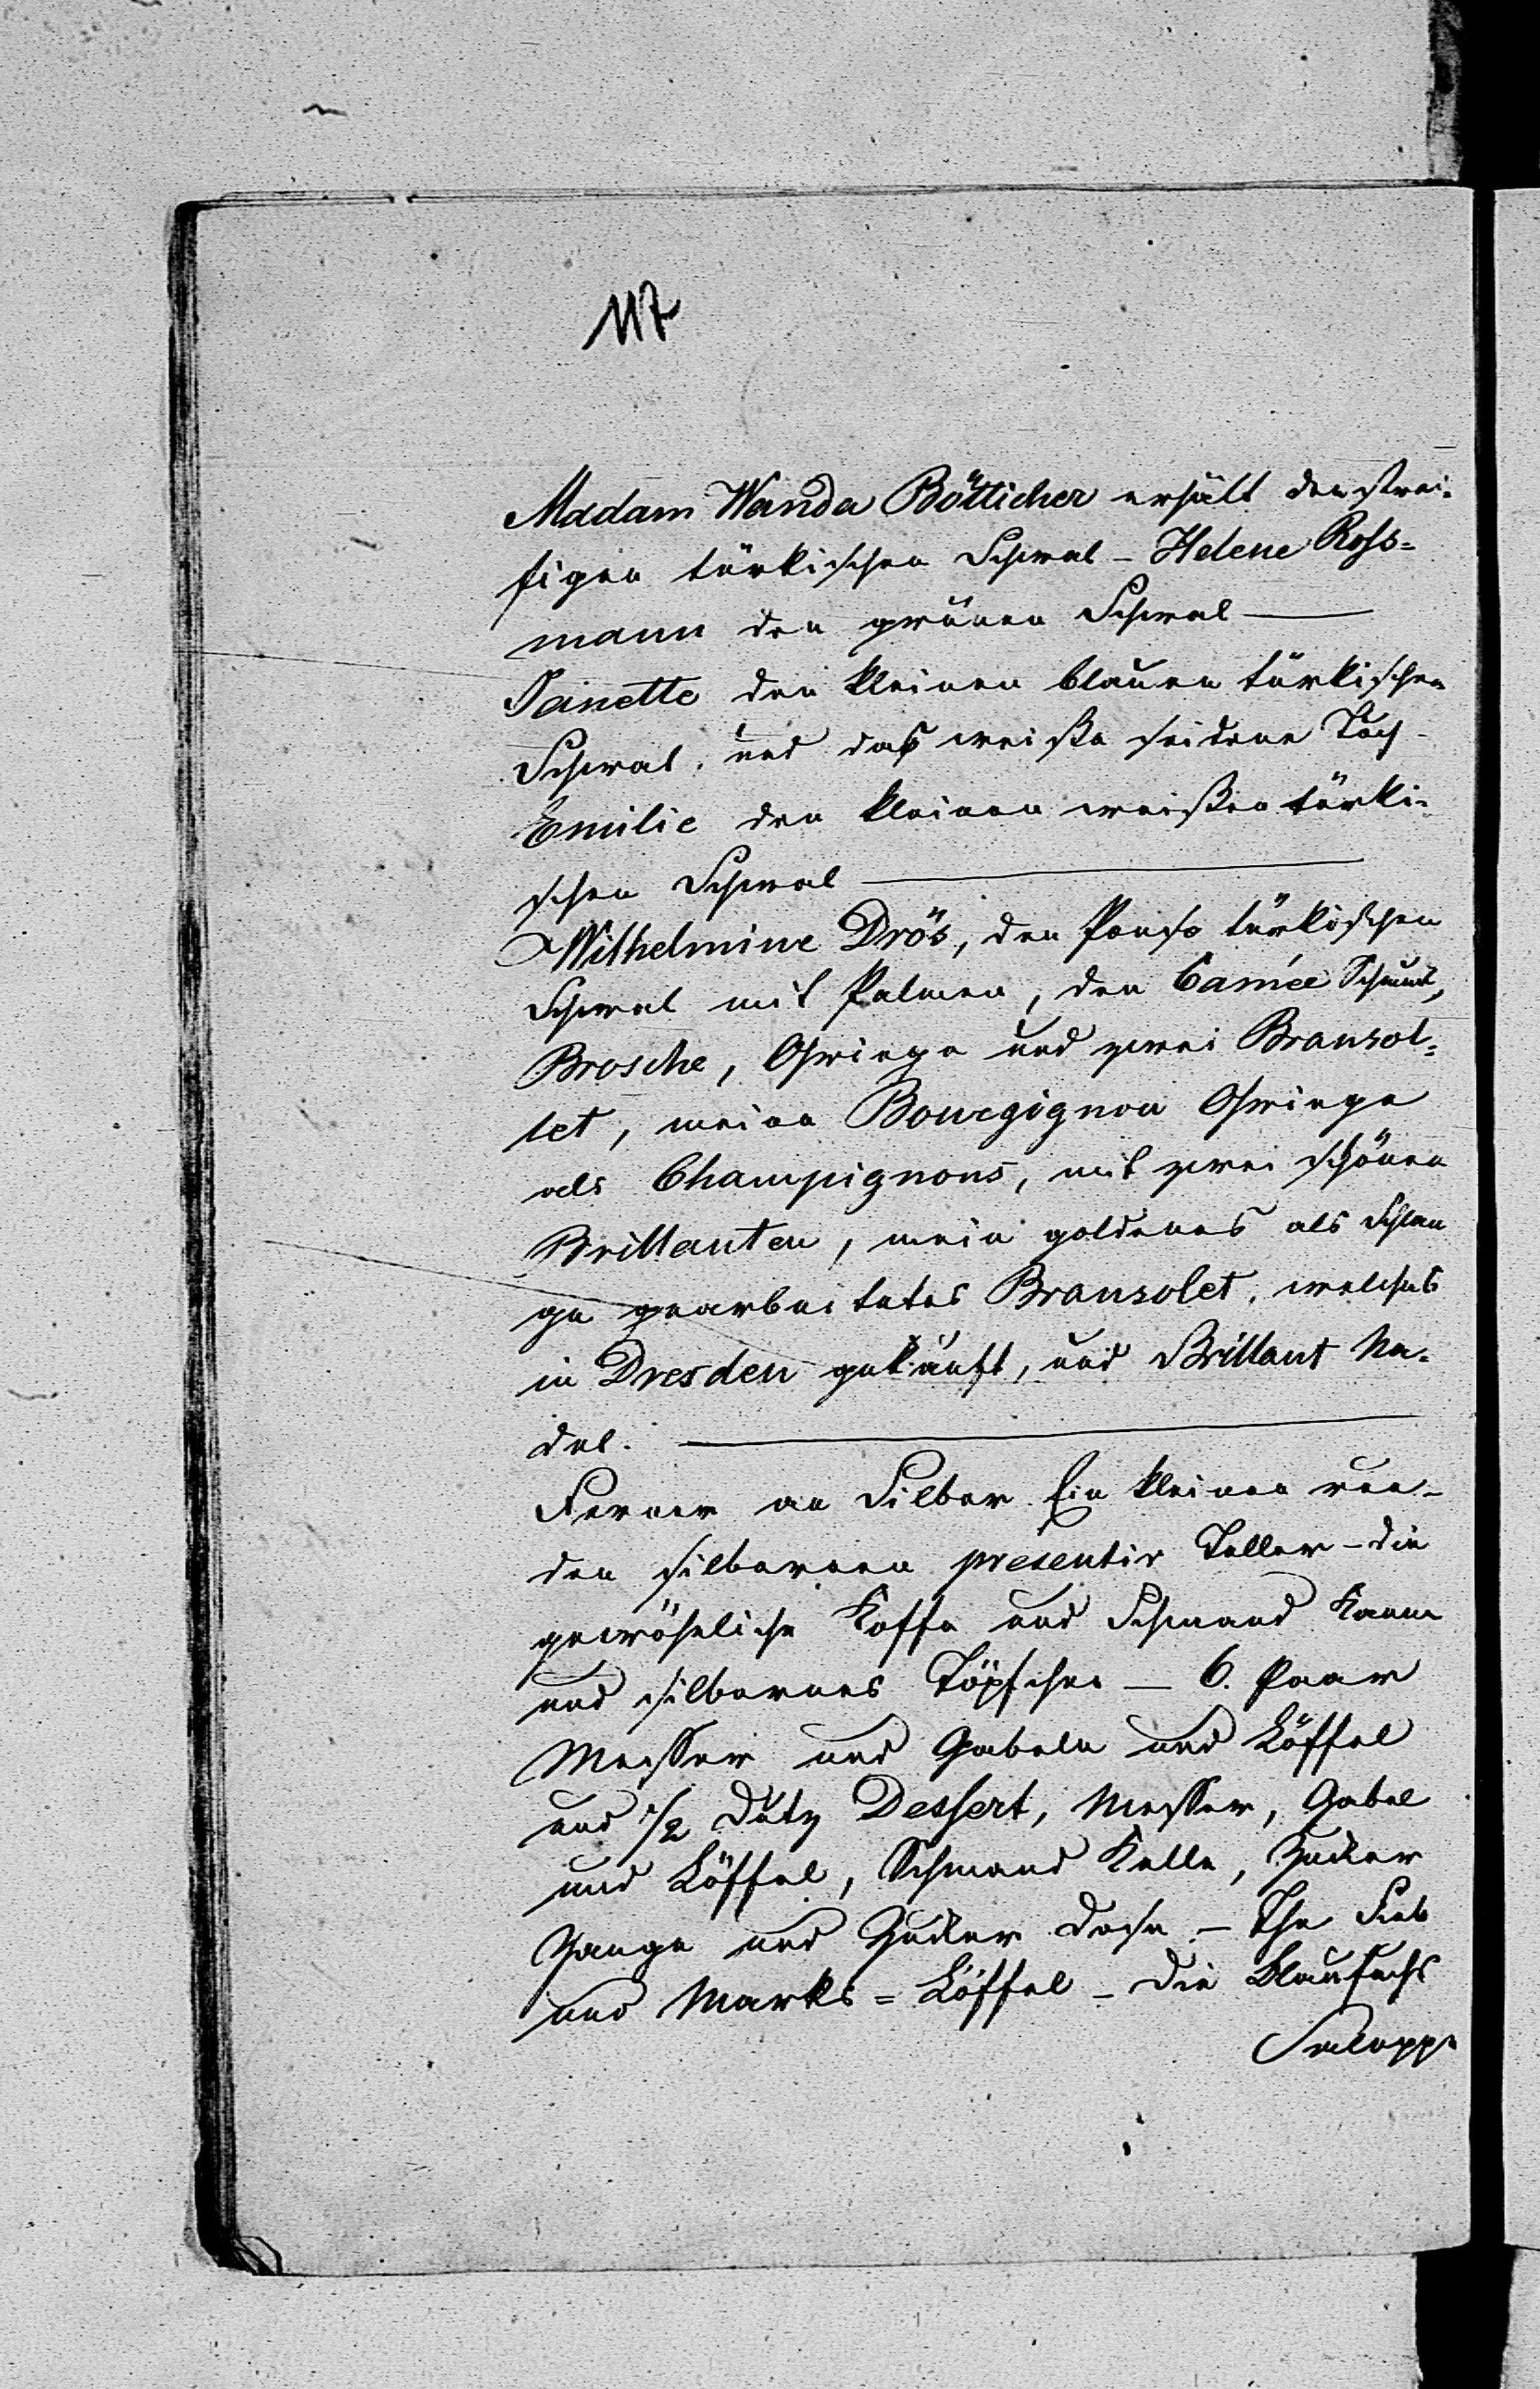 117
Madam Wanda Bötticher erhält den strei-
figen türkischen Schwal - Helene Ross=
mann den grünen Schwal —
Janette den kleinen blauen türkischen
Schwal, und daß weiße seidene Tuch -
Emilie den kleinen weißen türki-
schen Schwal —
Wilhelmine Drös, den Ponso türkischen
Schwal mit Palmen, den Camée Schmuk,
Brosche, Ohringe und zwei Bransol=
let, meine Bourgignon Ohringe
als Champignons, mit zwei schönen
Brillanten, mein goldenes als Schlan
ge gearbeitetes Bransolet, welches
in Dresden gekauft, und Brillant Na-
del. —
Ferner an Silber. Ein kleinen run-
den silbernen presentir Teller - die
gewöhnliche Koffe und Schmand Kanne
und silbernes Töpfchen — 6. Paar
Messer und Gabeln und Löffel
und 1/2 Dutz Dessert, Messer, Gabel
und Löffel, Schmand Kelle, Zucker
Zange und Zucker Dose - The Sieb
und Marks = Löffel - Die Blaufuchs
Saloppe